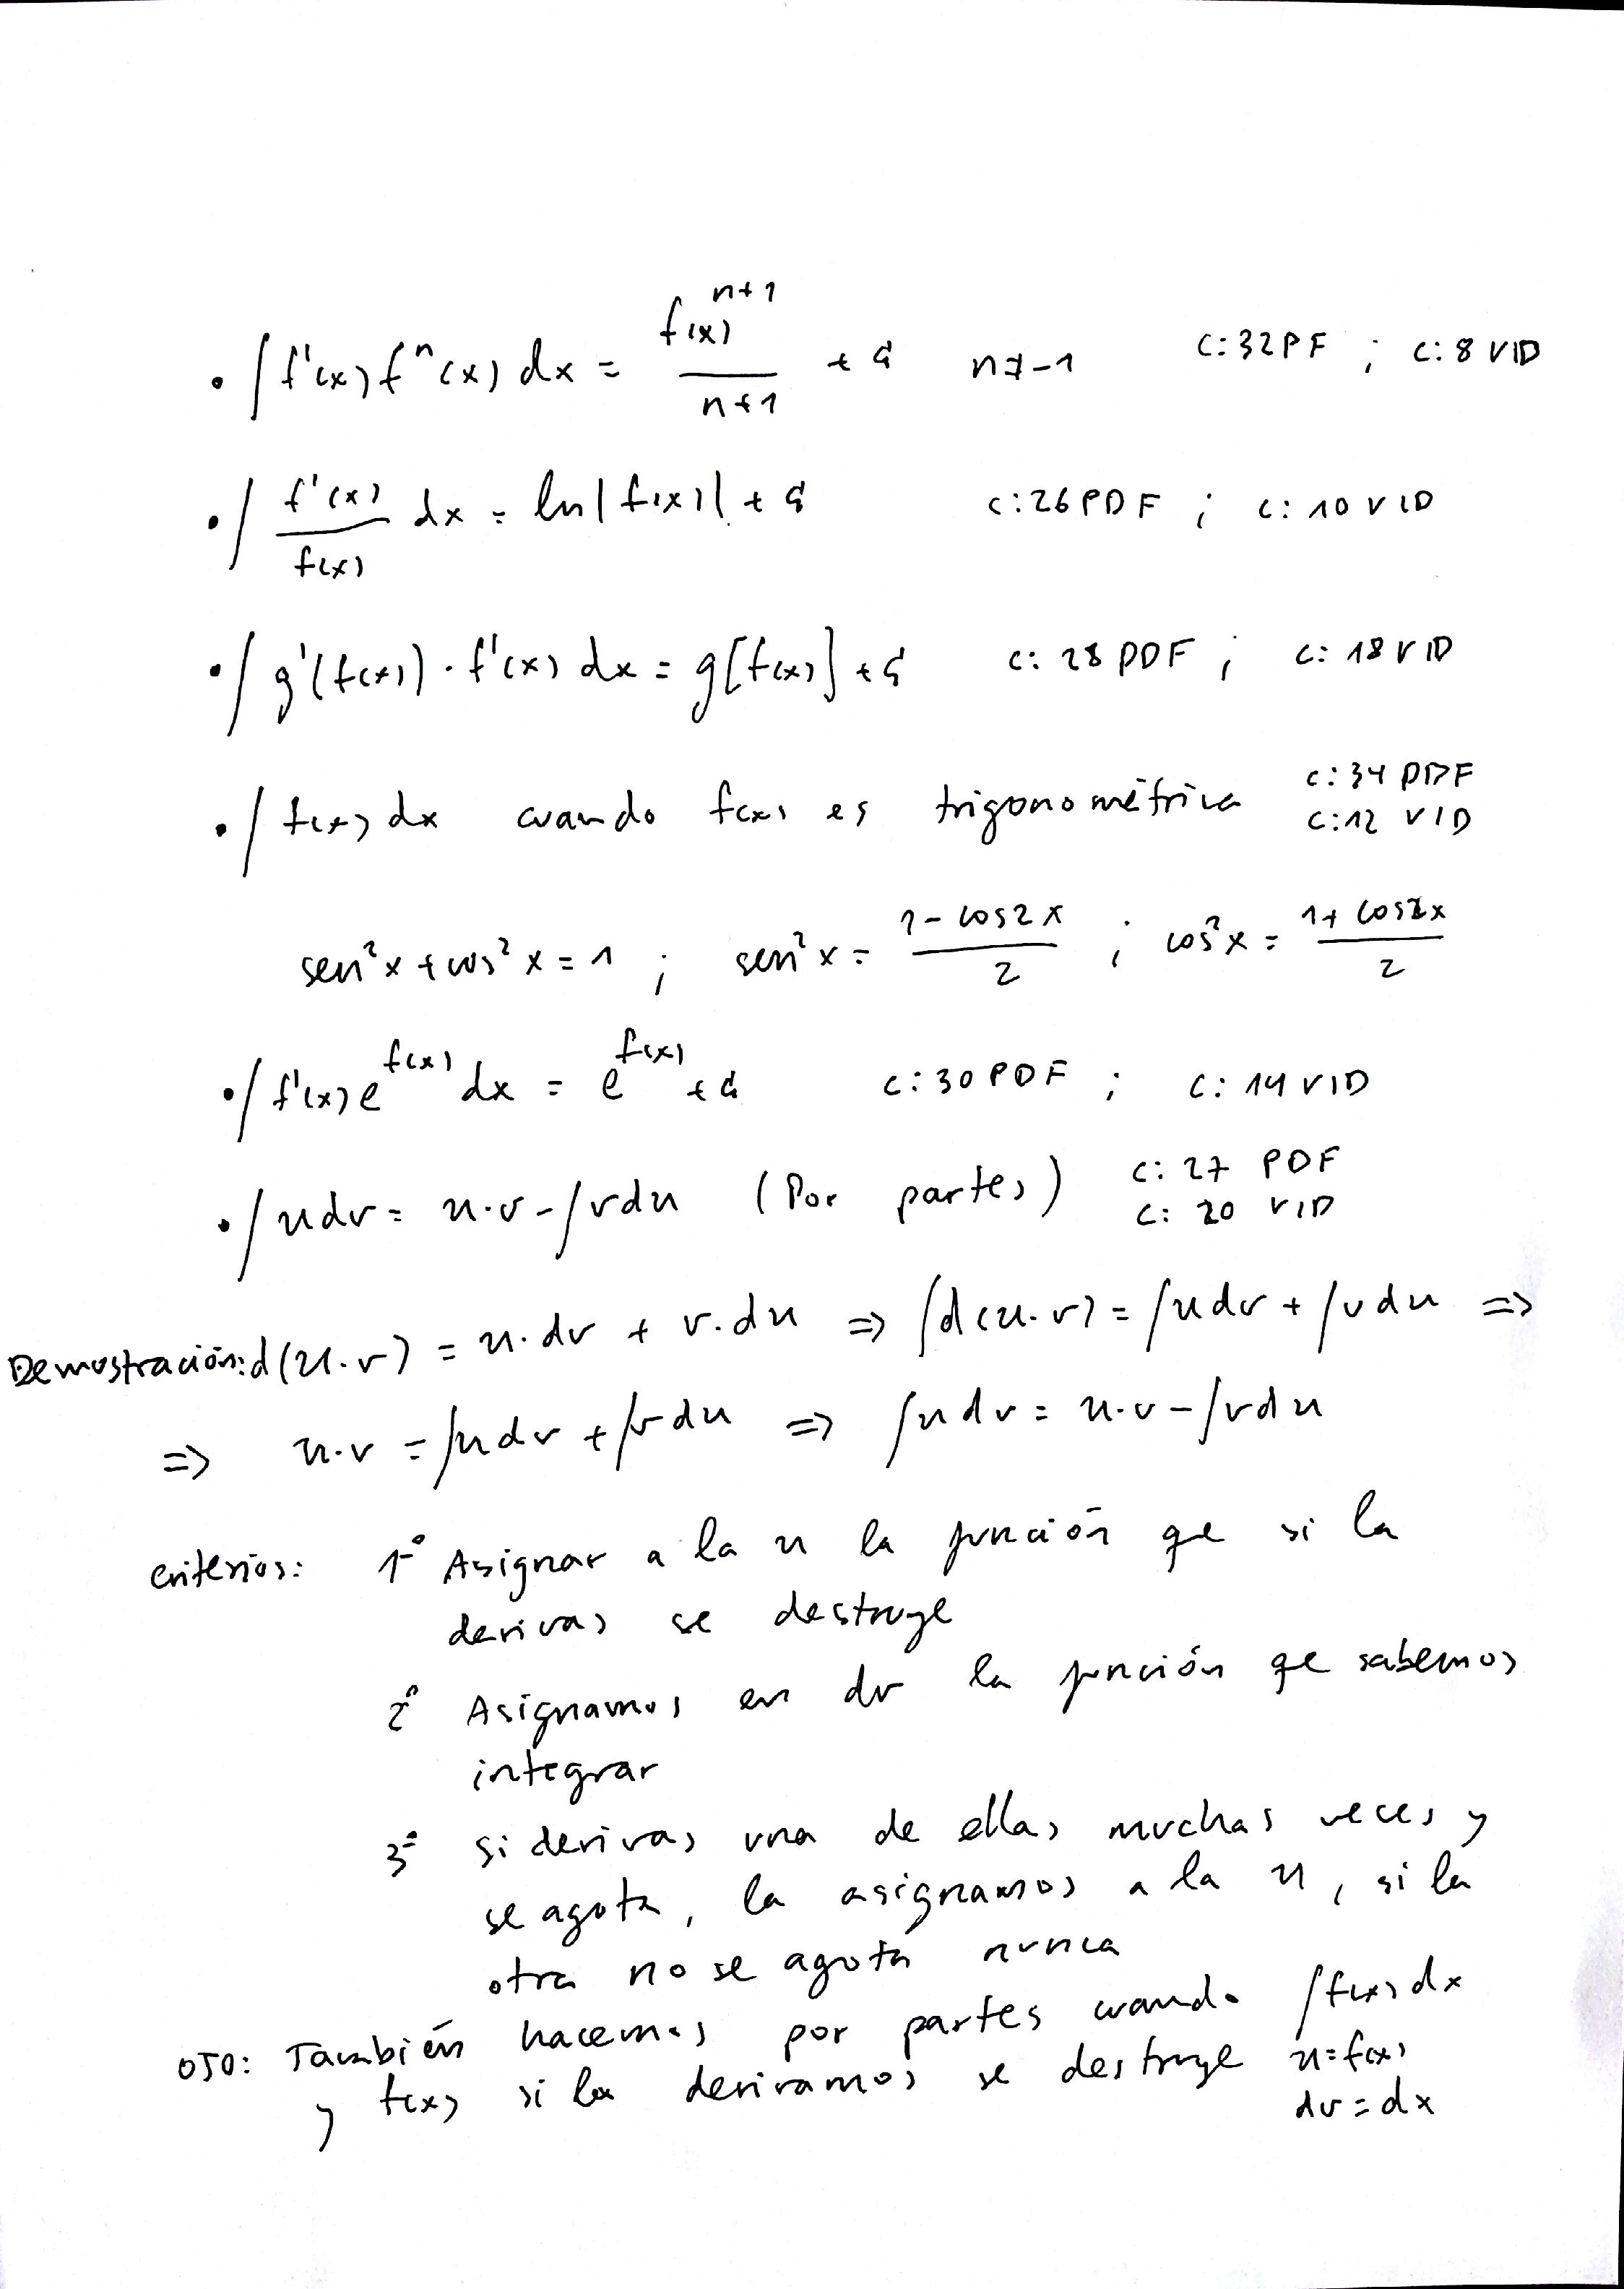 • ∫ f'(x) fⁿ(x) dx = f(x)ⁿ⁺¹ / n+1 + C n ≠ -1 C: 32 PF ; C: 8 VID
• ∫ f'(x) / f(x) dx = ln | f(x) | + C C: 26 PDF ; C: 10 VID
• ∫ g'(f(x)) · f'(x) dx = g[f(x)] + C C: 28 PDF ; C: 18 VID
• ∫ f(x) dx cuando f(x) es trigonométrica C: 34 PDF
C: 12 VID
sen²x + cos²x = 1 ; sen²x = 1 - cos2x / 2 ; cos²x = 1 + cos2x / 2
• ∫ f'(x) e^f(x) dx = e^f(x) + C C: 30 PDF ; C: 14 VID
• ∫ u dv = u·v - ∫ v du (Por partes) C: 27 PDF
C: 20 VID
Demostración: d(u·v) = u·dv + v·du => ∫ d(u·v) = ∫ u dv + ∫ v du =>
=> u·v = ∫ u dv + ∫ v du => ∫ u dv = u·v - ∫ v du
criterios: 1º Asignar a la u la función qe si la
derivas se destruye
2º Asignamos en dv la función qe sabemos
integrar
3º si derivas una de ellas muchas veces y
se agota, la asignamos a la u, si la
otra no se agota nunca
OJO: También hacemos por partes cuando ∫ f(x) dx
y f(x) si la derivamos se destruye u = f(x)
dv = dx